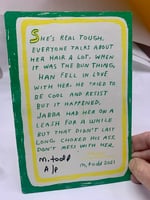 SHE'S REAL TOUGH,
EVERYONE TALKS ABOUT
HER HAIR A LOT. WHEN
IT WAS THE BUN THING
HAN FELL IN LOVE
WITH HER. HE TRIED TO
BE COOL AND RESIST
BUT IT HAPPENED.
JABBA HAD HER ON A
LEASH FOR A WHILE
BUT THAT DIDN'T LAST
LONG. CHOKED HIS ASS.
DON'T MESS WITH HER.
M. TODD
A/P
M. TODD 2021